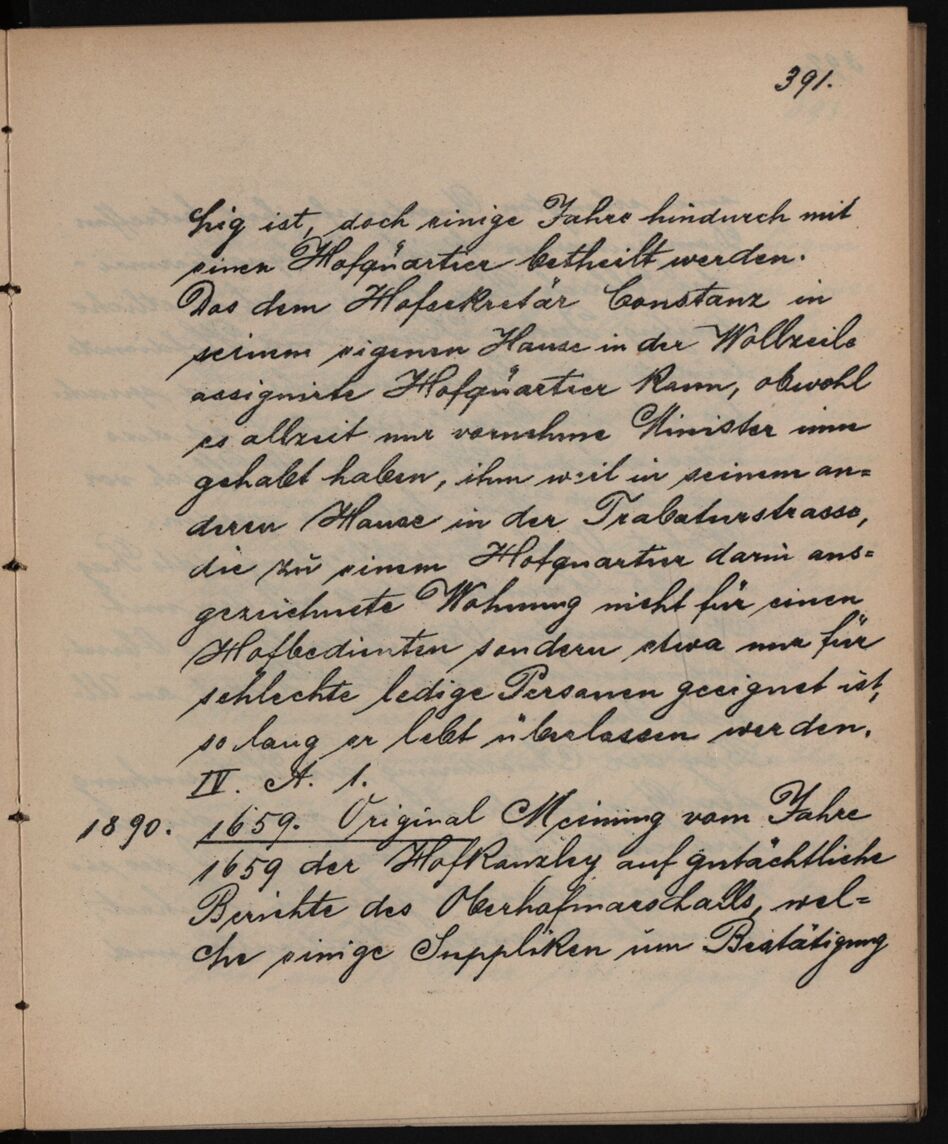 391.
hig ist, doch einige Jahre hindurch mit
einen Hofquartier betheilt werden.
Das dem Hofsekretär Constanz in
seinem eigenen Hause in der Wollzeile
assignirte Hofquartier kann, obwohl
es allzeit nur vornehme Minister inne
gehabt haben, ihm weil in seinem an=
deren Hause in der Trabaturstrasse,
die zu einem Hofquartier darin aus=
gezeichnete Wohnung nicht für einen
Hofbedienten sondern etwa nur für
schlechte ledige Personen geeignet ist,
so lang er lebt überlassen werden.
IV. A. 1.
1890. 1659. Original Meinung vom Jahre
1659 der Hofkanzley auf gutächtliche
Berichte des Oberhofmarschalls, wel=
che einige Suppliken um Bestätigung